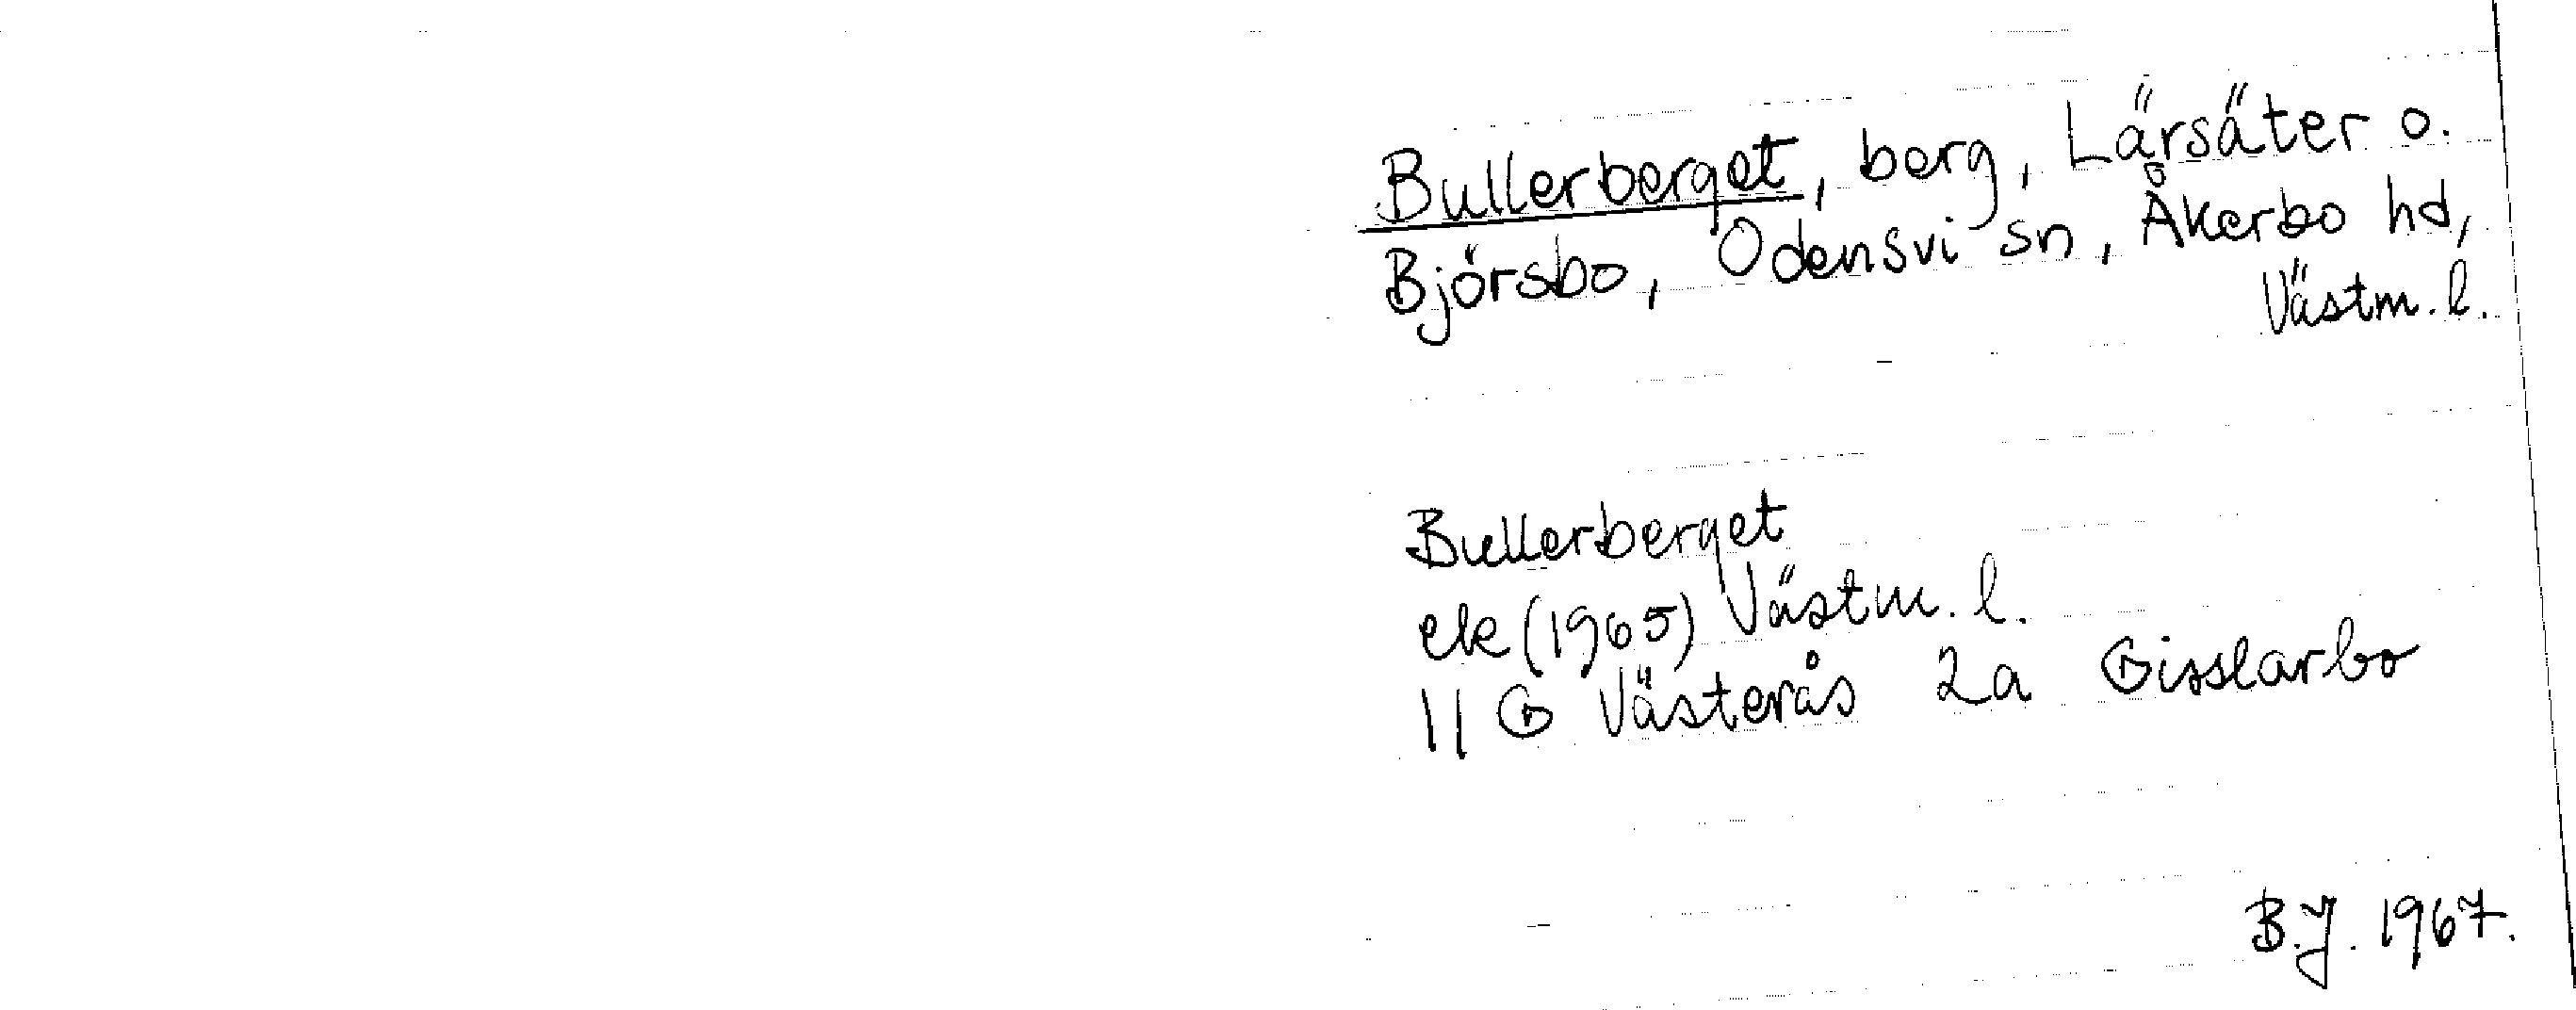 Bullerberget, berg, Lärsäter o.
Björsbo, Odensvi sn, Åkerbo hd,
Västm. l.
Bullerberget
ek (1965) Västm. l.
11 G Västerås 2a Gisslarbo
B.J. 1967.